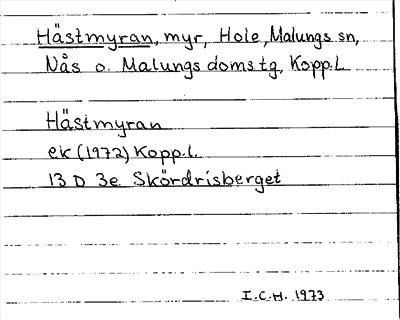 Hästmyran, myr, Hole, Malungs sn,
Nås o. Malungs domstg, Kopp.l
Hästmyran
ek (1972) Kopp.l.
13 D 3e Skördrisberget
I.C.H. 1973